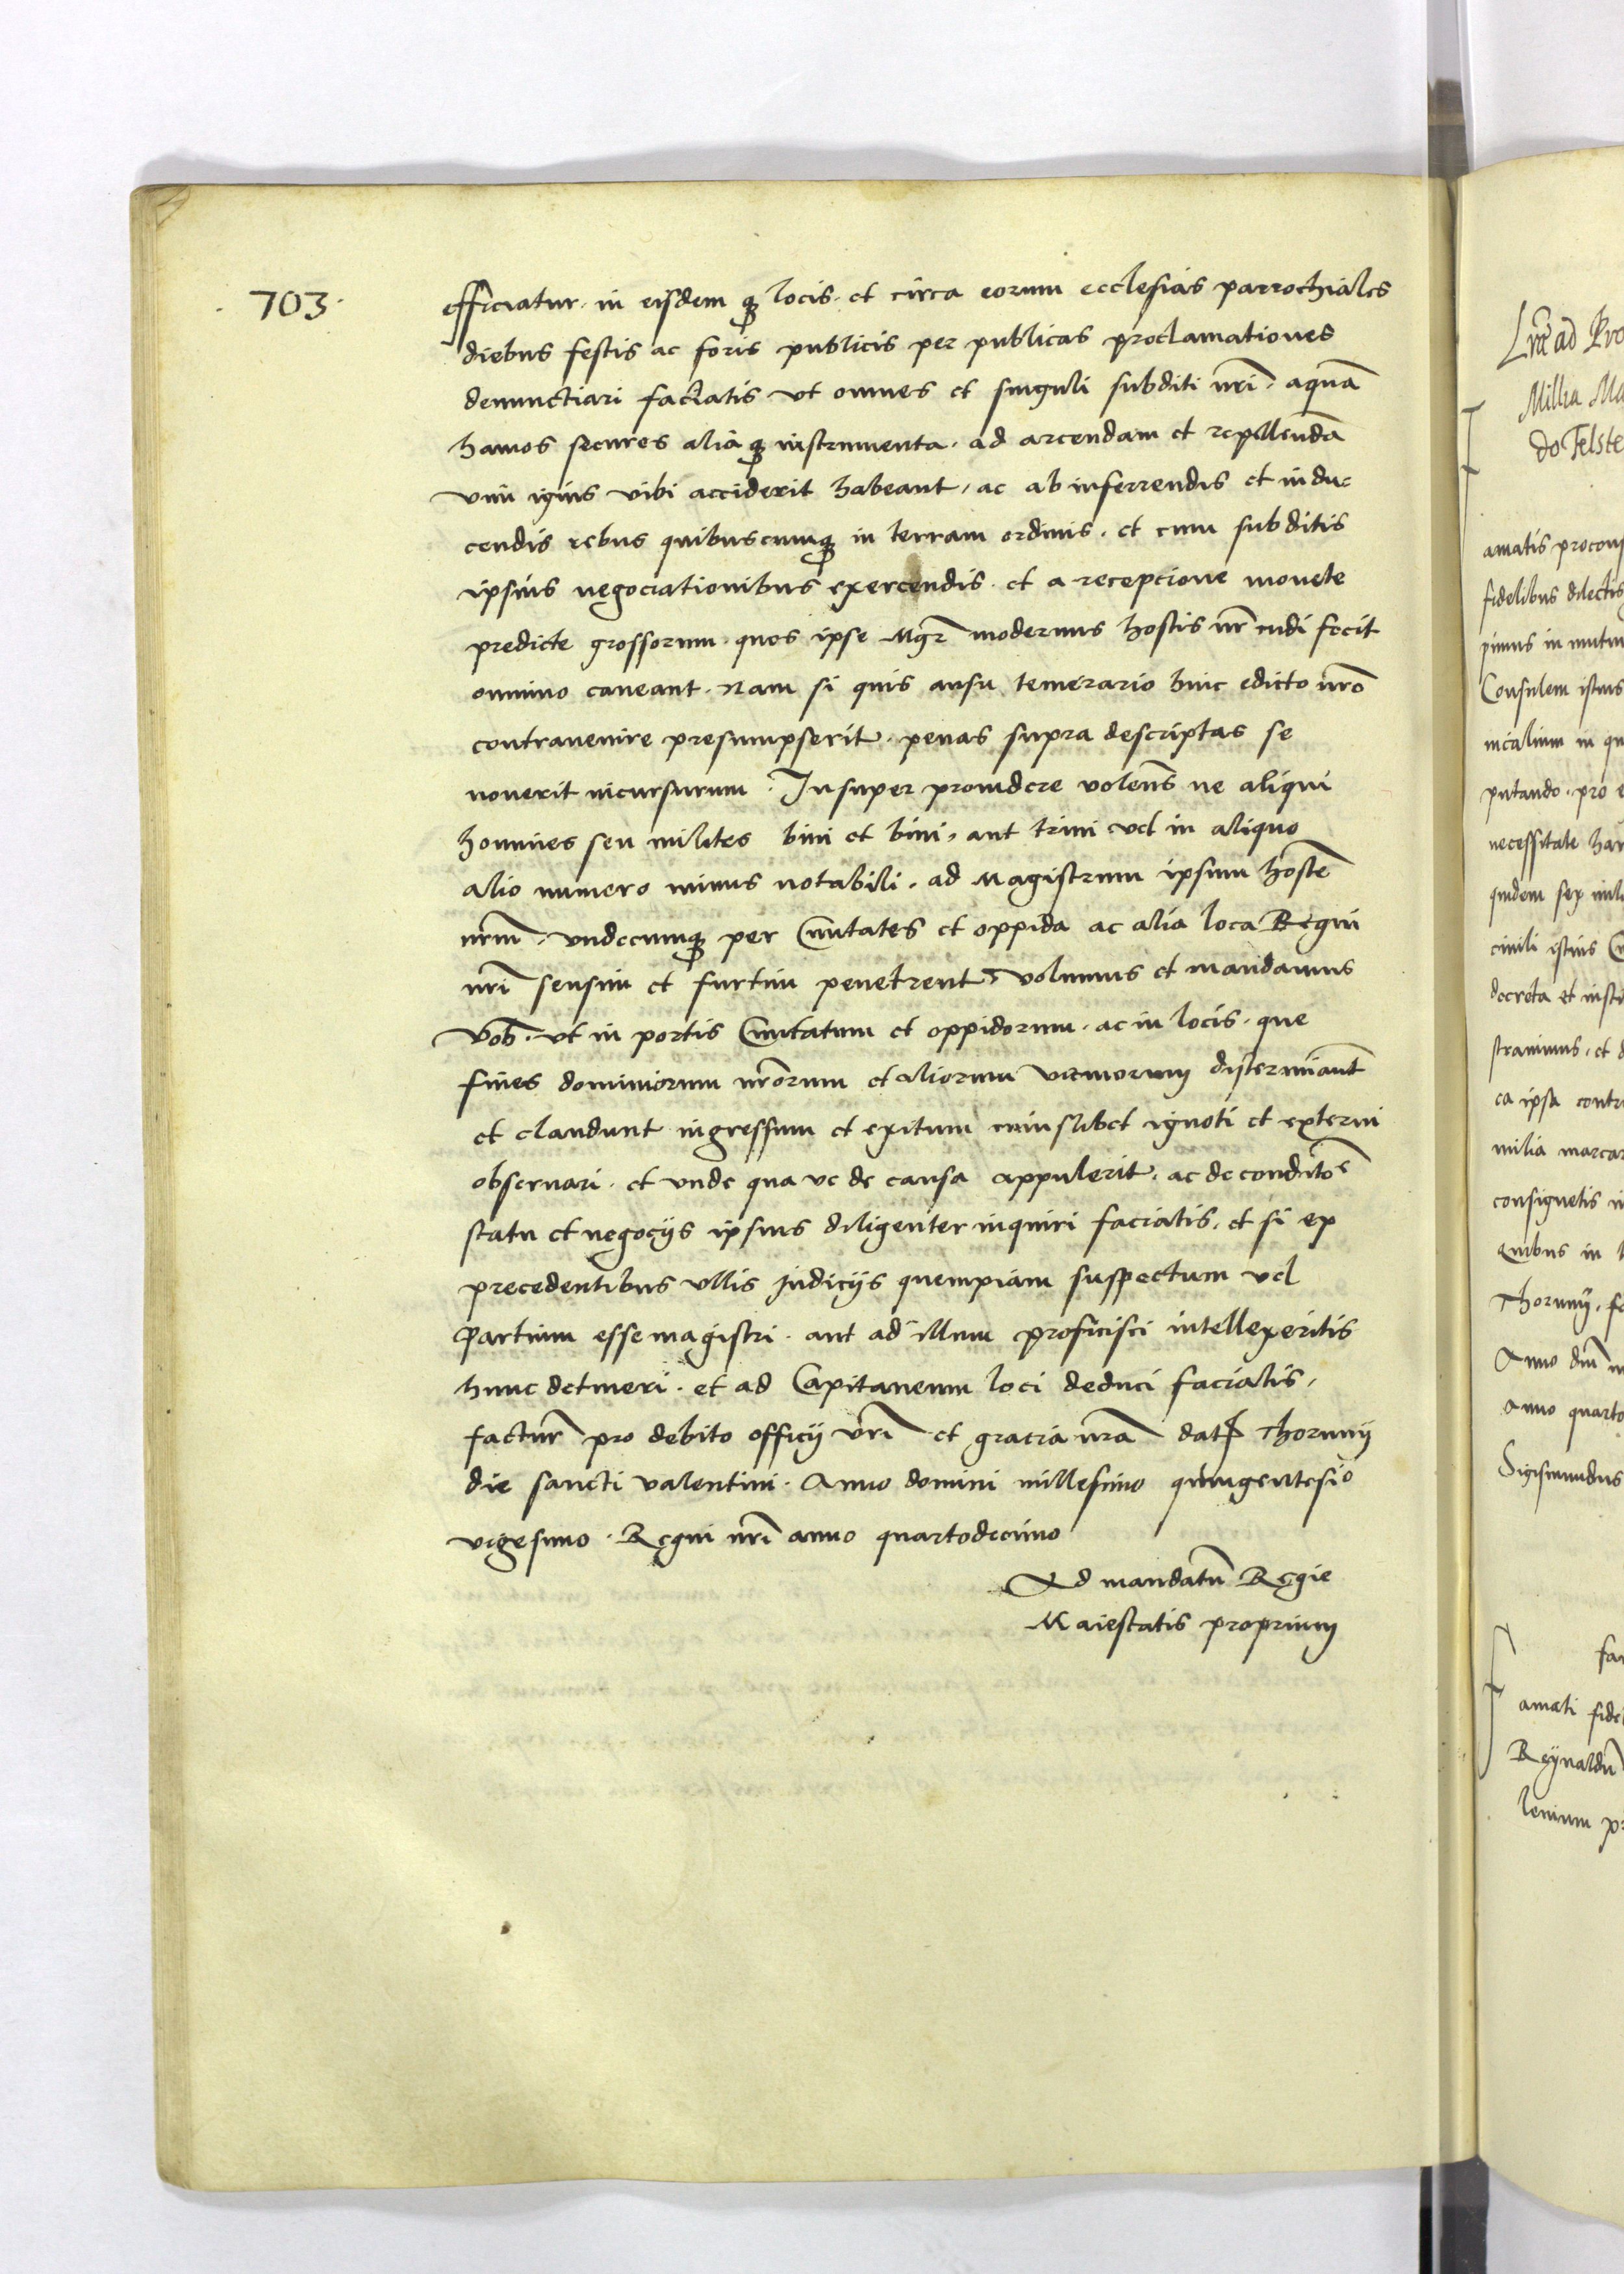 703.
efficiatur. in eisdem q₃ locis. et circa eorum ecclesias parrochiales
diebus festis ac foris publicis per publicas proclamationes
denunctiari faciatis vt omnes et singuli subditi nr̄i. aquā
hamos secures alia q₃ instrumenta. ad arcendam et repellendā
vim ignis vibi acciderit habeant, ac ab inferrendis et indu-
cendis rebus quibuscumq₃ in terram ordinis. et cum subditis
ipsius negociationibus exercendis. et a recepcione monete
predicte grossorum. quos ipse Mgr̄ modernus hostis nr̄ cudi fecit
omnino caueant. Nam si quis ausu temerario huic edicto nr̄o
contrauenire presumpserit. penas supra descriptas se
nouerit incursurum. Insuper prouidere volen̄s ne aliqui
homines seu milites bini et bini, aut trini vel in aliquo
alio numero minus notabili. ad Magistrum ipsum hostē
nr̄m. vndecumq₃ per Ciuitates et oppida ac alia loca Regni
nr̄i sensim et furtim penetrent, volumus et mandamus
vob̄. vt in portis Ciuitatum et oppidorum. ac in locis. que
fines dominiorum nr̄orum et aliorum vicinorum disterminant̄
et claudunt ingressum et exitum cuiuslibet ignoti et externi
obseruari. et vnde qua ve de causa appulerit. ac de conditōe
statu et negocijs ipsius diligenter inquiri faciatis. et si ex
precedentibus vllis Judicijs quempiam suspectum vel
Partium esse magistri. aut ad illum proficisci intellexeritis
hunc detineri. et ad Capitaneum loci deduci faciatis,
factur̄ pro debito officij vr̄i et gracia nr̄a dat̄ Thorunij
die sancti valentini. Anno domini millesimo quingentesio
vigesimo. Regni nr̄i anno quartodecimo
Ad mandatū Regie
Maiestatis proprium
Lr̄a ad Pro
Millia Ma
do Felste
amatis procons
fidelibus dilectis
pimus in mutu
Consulem istius
putando. pro e
necessitate har
quidem sex mil
ciuili istius C
decreta et insti
strauimus. et d
ca ipsa contr
milia marcar
consignetis i
quibus in
Thorunij. f
Anno dn̄i m
anno quarto
Sigismundus
fa
amati fide
Reynaldū